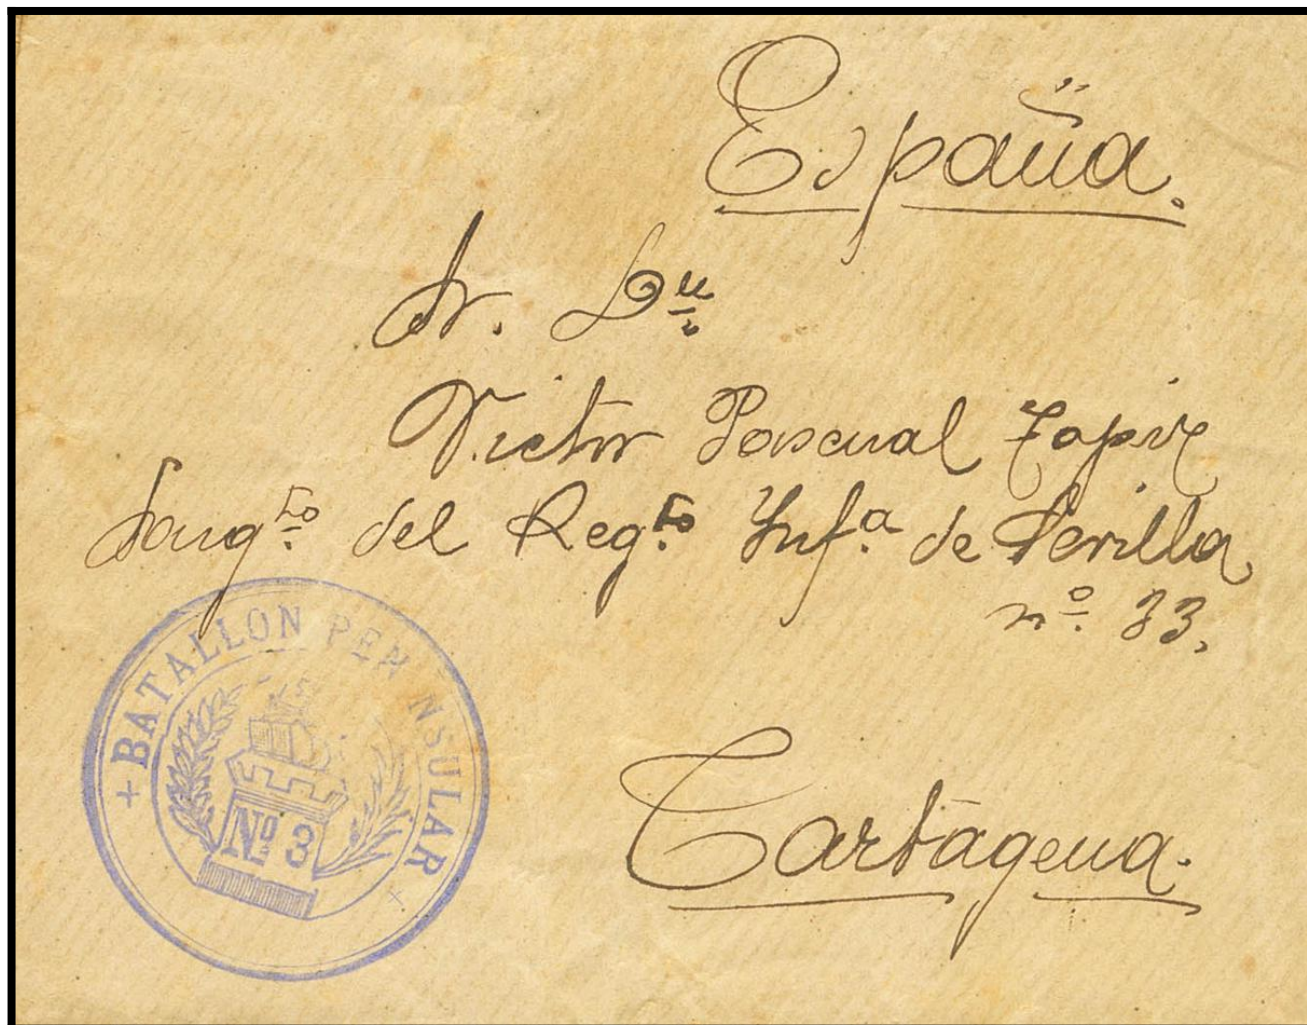 España.
Sr. Dn
Victor Pascual
Sargto del Regto Infa de Sevilla
nº 33.
Cartagena.
+ BATALLON PENINSULAR +
Nº 3